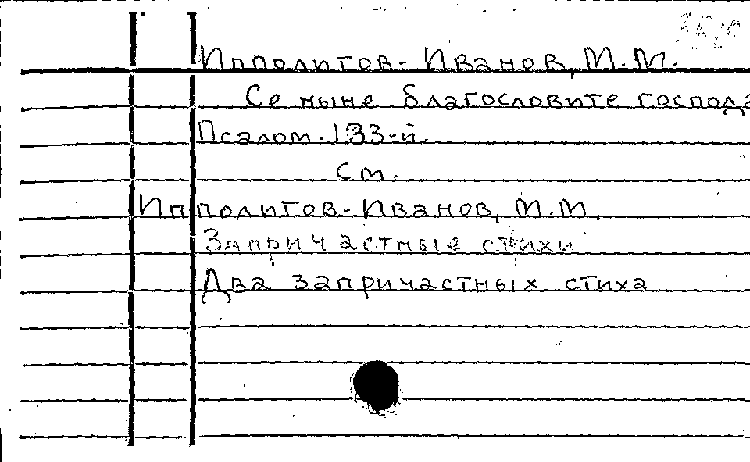 Ипполитов-Иванов, М.М.
Се ныне благословите господа
Псалом.133-й.
См.
Ипполитов-Иванов, М.М.
Запричастные стихи
Два запричастных стиха